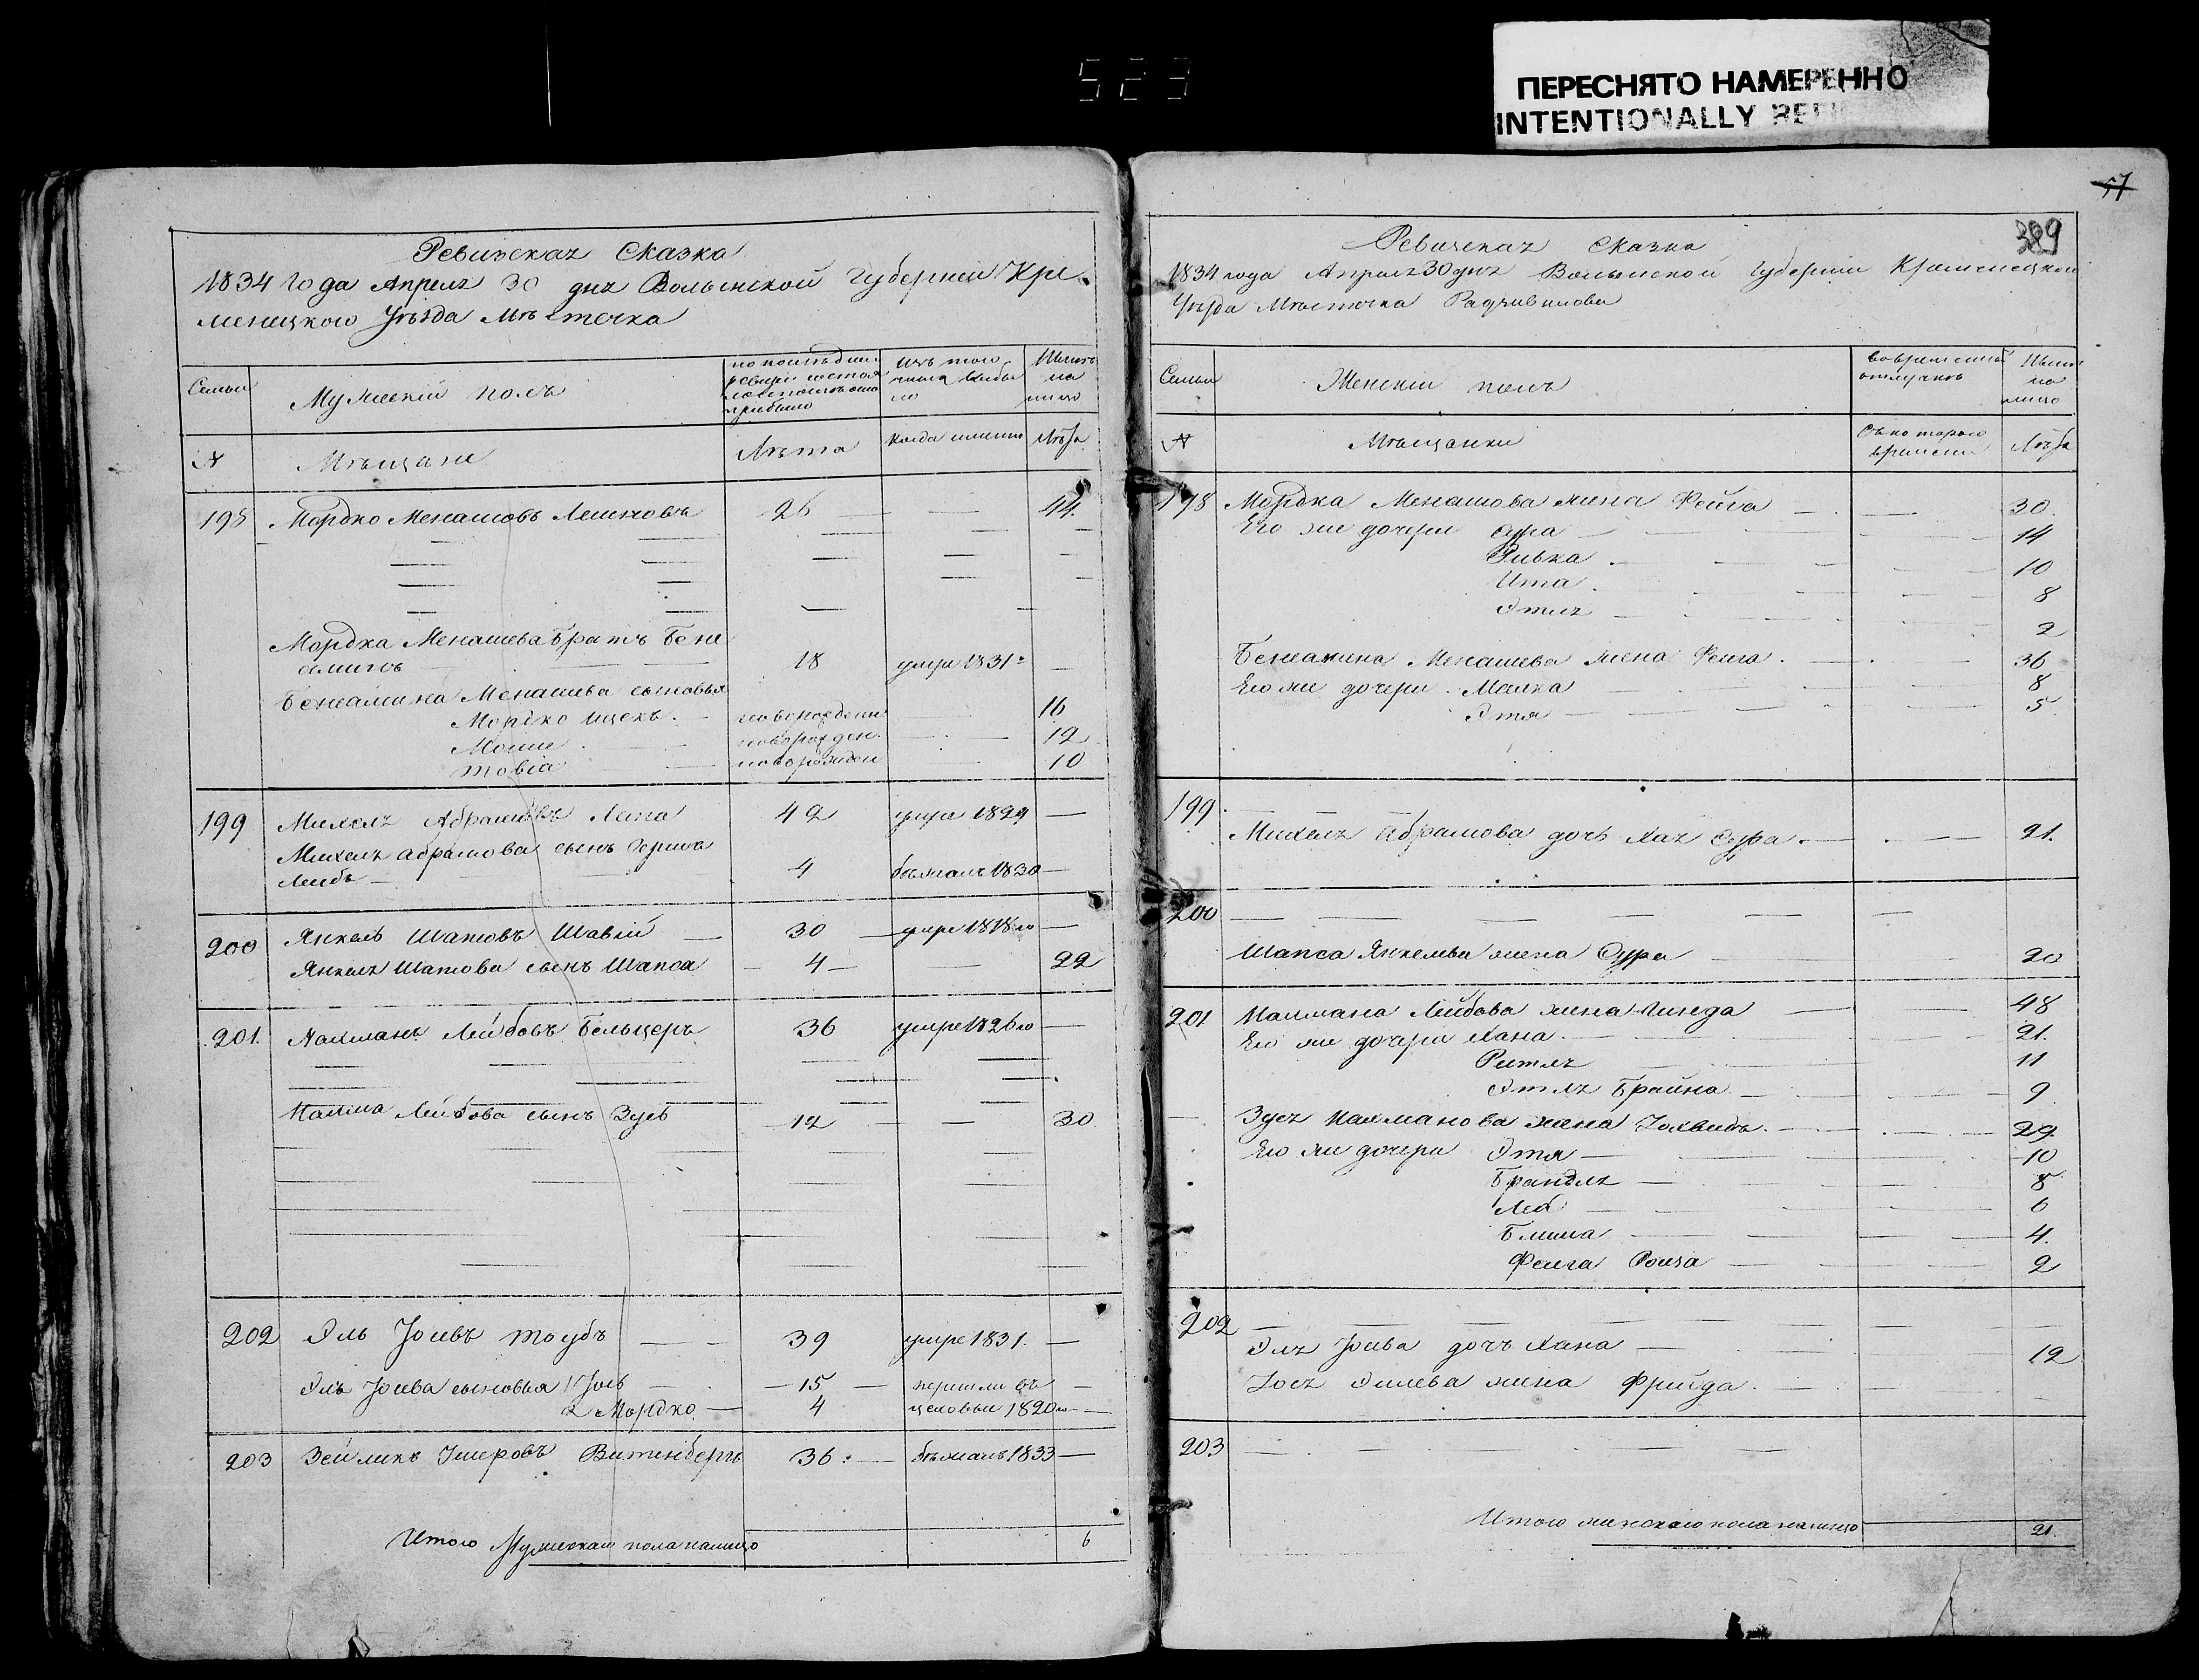 523
ПЕРЕСНЯТО НАМЕРЕННО
INTENTIONALLY
57
389
Ревизская Сказка
1834 года Апреля 30 дня Волынской Губернии Кре
менецкого Уѣзда Мѣстечка
Семьи
Мужескій полъ
по последней ревизіи состояло и после оной прибыло
Изъ того числа выбыло
Нынѣ на лицо
№
Мѣщане
Лѣта
Когда именно
Лѣта
198 Мордко Менашовъ 26 44
Мордка Менашева Братъ Бене
аминъ 18 умре 1831
Бенеамина Менашева сыновья
Мордко Ицекъ новорожден 16
Моше новорожден 12
Товіа новорожден 10
199 Михель Абрамовъ 42 умре 1829
Михеля Абрамова сынъ Герша
Лейбъ 4 бѣжалъ 1830
200 Янкель Шапсовъ Шавій 30 умре 1818го
Янкеля Шапсова сынъ Шапса 4 22
201. Нахманъ Лейбовъ Бельцеръ 36 умре 1826го
Нахма Лейбова сынъ Зусь 12 30
202 Эль Іосевъ Таубъ 39 умре 1831.
Эля Іосева сыновья 1 Іось 15 перешли въ
2 Мордко 4 цеховыи 1820го
203 Зейликъ Ушеровъ Витенбергъ 36 бѣжалъ 1833
Итого Мужескаго пола налицо 6
Ревизская Сказка
1834 года Апреля 30 дня Волынской Губерніи Кременецкого
Уѣзда Мѣстечка Радзивилова
Семьи
Женскій полъ
во временной отлучкѣ
Нынѣ на лицо
№
Мѣщанки
Съ котораго времени
Лѣта
198 Мордка Менашова жена Фейга 30.
Его же дочери Сура 14
Ривка 10
Ита 8
Этля 2
Бенеамина Менашева жена Фейга 36
Его же дочери Малка 8
Этя 5
199.
Михеля Абрамова дочь Хая Сура 21.
200
Шапса Янкелева жена Сура 20
201 Нахмана Лейбова жена Гинда 48
Его же дочери Хана 21.
Рейтля 11
Этля Брайна 9
Зуся Нахманова жена Іохведъ 29
Его же дочери Этя 10
Брандля 8
Леа 6
Блима 4.
Фейга Роиза 2
202
Эля Іосева дочь Хана 12
Іося Элиева жена Фрейда
203
Итого женскаго пола налицо 21.